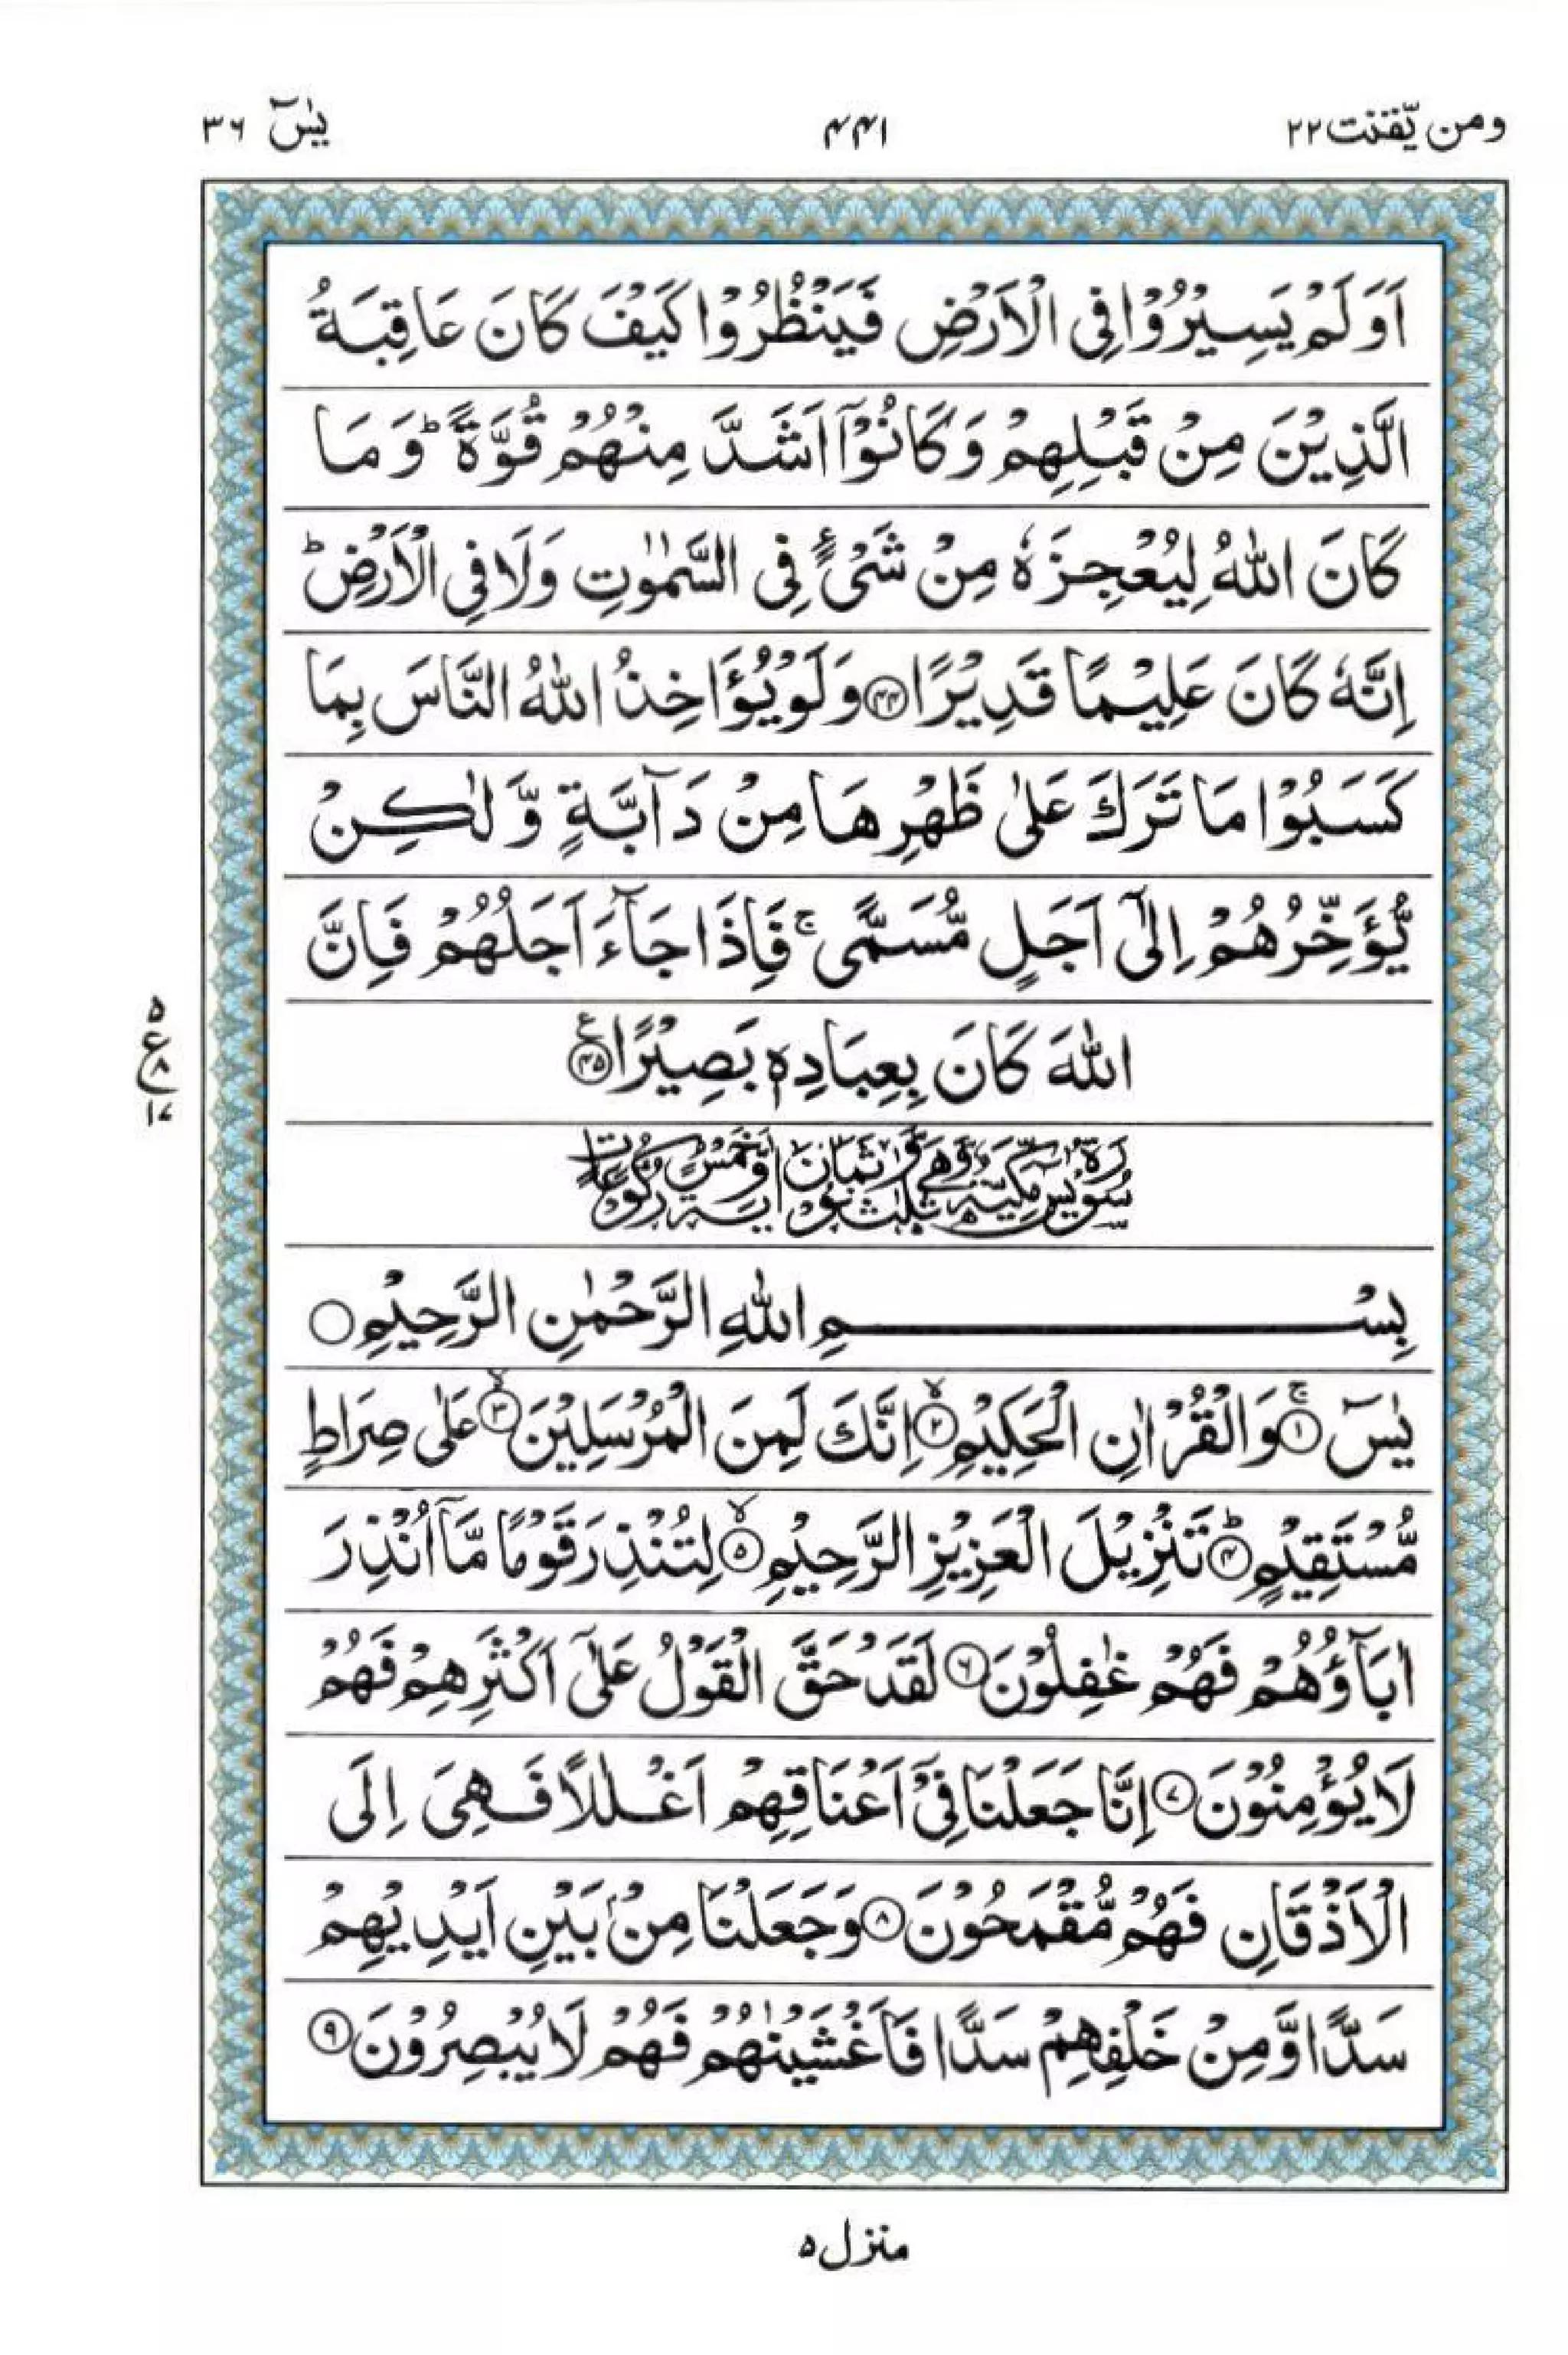 ومن يّقنت ٢٢ ٤٤١ يٰسٓ ٣٦
اَوَلَمْ يَسِيْرُوْا فِى الْاَرْضِ فَيَنْظُرُوْا كَيْفَ كَانَ عَاقِبَةُ
الَّذِيْنَ مِنْ قَبْلِهِمْ وَكَانُوْٓا اَشَدَّ مِنْهُمْ قُوَّةً ؕ وَمَا
كَانَ اللّٰهُ لِيُعْجِزَهٗ مِنْ شَىْءٍ فِى السَّمٰوٰتِ وَلَا فِى الْاَرْضِ ؕ
اِنَّهٗ كَانَ عَلِيْمًا قَدِيْرًا ﴿٤٤﴾ وَلَوْ يُؤَاخِذُ اللّٰهُ النَّاسَ بِمَا
كَسَبُوْا مَا تَرَكَ عَلٰى ظَهْرِهَا مِنْ دَآبَّةٍ وَّلٰكِنْ
يُّؤَخِّرُهُمْ اِلٰٓى اَجَلٍ مُّسَمًّى ۚ فَاِذَا جَآءَ اَجَلُهُمْ فَاِنَّ
اللّٰهَ كَانَ بِعِبَادِهٖ بَصِيْرًا ﴿٤٥﴾ ع
٥ ع ٨ ١٧
سُوْرَةُ يٰسٓ مَكِّيَّةٌ وَّهِىَ ثَلٰثٌ وَّثَمَانُوْنَ اٰيَةً وَّخَمْسُ رُكُوْعَاتٍ
بِسْمِ اللّٰهِ الرَّحْمٰنِ الرَّحِيْمِ
يٰسٓ ﴿١﴾ ۚ وَالْقُرْاٰنِ الْحَكِيْمِ ﴿٢﴾ ۙ اِنَّكَ لَمِنَ الْمُرْسَلِيْنَ ﴿٣﴾ ۙ عَلٰى صِرَاطٍ
مُّسْتَقِيْمٍ ﴿٤﴾ ؕ تَنْزِيْلَ الْعَزِيْزِ الرَّحِيْمِ ﴿٥﴾ ۙ لِتُنْذِرَ قَوْمًا مَّآ اُنْذِرَ
اٰبَآؤُهُمْ فَهُمْ غٰفِلُوْنَ ﴿٦﴾ لَقَدْ حَقَّ الْقَوْلُ عَلٰٓى اَكْثَرِهِمْ فَهُمْ
لَا يُؤْمِنُوْنَ ﴿٧﴾ اِنَّا جَعَلْنَا فِىْٓ اَعْنَاقِهِمْ اَغْلٰلًا فَهِىَ اِلَى
الْاَذْقَانِ فَهُمْ مُّقْمَحُوْنَ ﴿٨﴾ وَجَعَلْنَا مِنْۢ بَيْنِ اَيْدِيْهِمْ
سَدًّا وَّمِنْ خَلْفِهِمْ سَدًّا فَاَغْشَيْنٰهُمْ فَهُمْ لَا يُبْصِرُوْنَ ﴿٩﴾
منزل ٥